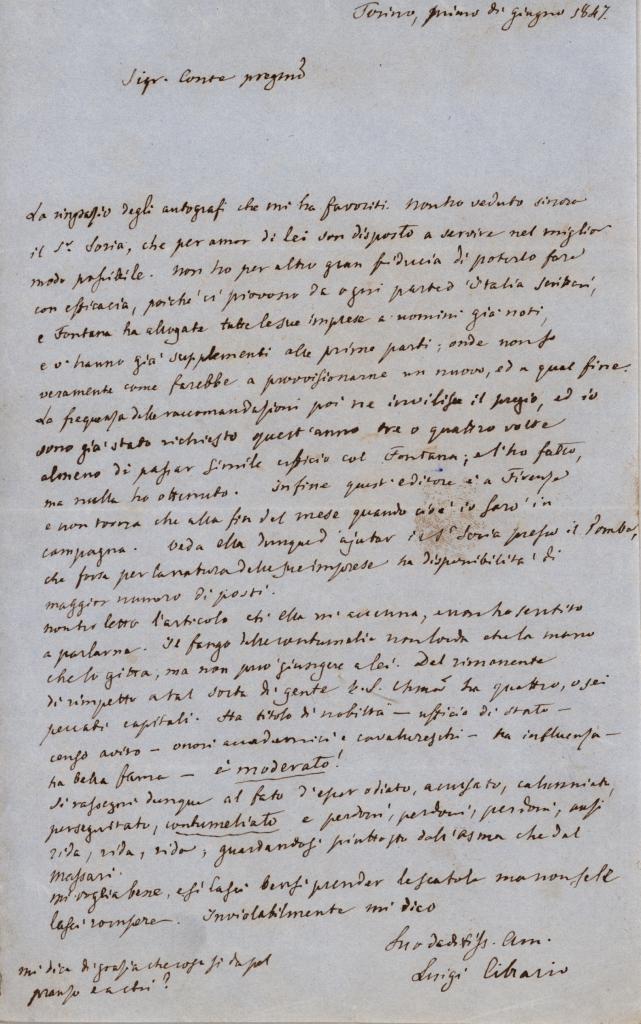 Torino, primo di giugno 1847.
Sigr. Conte pregmo
La ringrazio degli autografi che mi ha favoriti. Non ho veduto sinora
il Sr. Soria, che per amor di lei son disposto a servire nel miglior
modo possibile. Non ho per altro gran fiducia di poterlo fare
con efficacia, poiché ci piovono da ogni parte d'Italia scribani,
e Fontana ha allogate tutte le sue imprese a uomini già noti,
e v'hanno già supplementi alle prime parti; onde non so
veramente come farebbe a provvisionarne un nuovo, ed a qual fine.
La frequenza delle raccomandazioni poi ne invilisce il pregio, ed io
sono già stato richiesto quest'anno tre o quattro volte
almeno di passar simile ufficio col Fontana; e l'ho fatto,
ma nulla ho ottenuto. Infine quest'editore è a Firenze
e non torna che alla fin del mese quando cioè io sarò in
campagna. Veda ella dunque d'ajutar il Sr Soria presso il Pomba,
che forse per la natura delle sue imprese ha disponibilità di
maggior numero di posti.
Non ho letto l'articolo ch'ella mi accenna, e non ho sentito
a parlarne. Il fango delle contumelie non lorda che la mano
che lo gitta, ma non può giungere a lei. Del rimanente
di rimpetto a tal sorta di gente V.S. Chma ha quattro, o sei
peccati capitali. Ha titolo di nobiltà — ufficio di stato —
censo avito — onori accademici e cavallereschi — ha influenza —
ha bella fama — è moderato!
Si rassegni dunque al fato d'esser odiato, accusato, calunniato,
perseguitato, contumeliato e perdoni, perdoni, perdoni, anzi
rida, rida, rida; guardandosi piuttosto dall'asma che dal
Massari.
Mi voglia bene, e si lasci bensì prender le scatole ma non se le
lasci rompere. Inviolabilmente mi dico
Suo dediss. Am.
Luigi Cibrario
Mi dica di grazia che cosa si dà pel
pranzo e a chi?